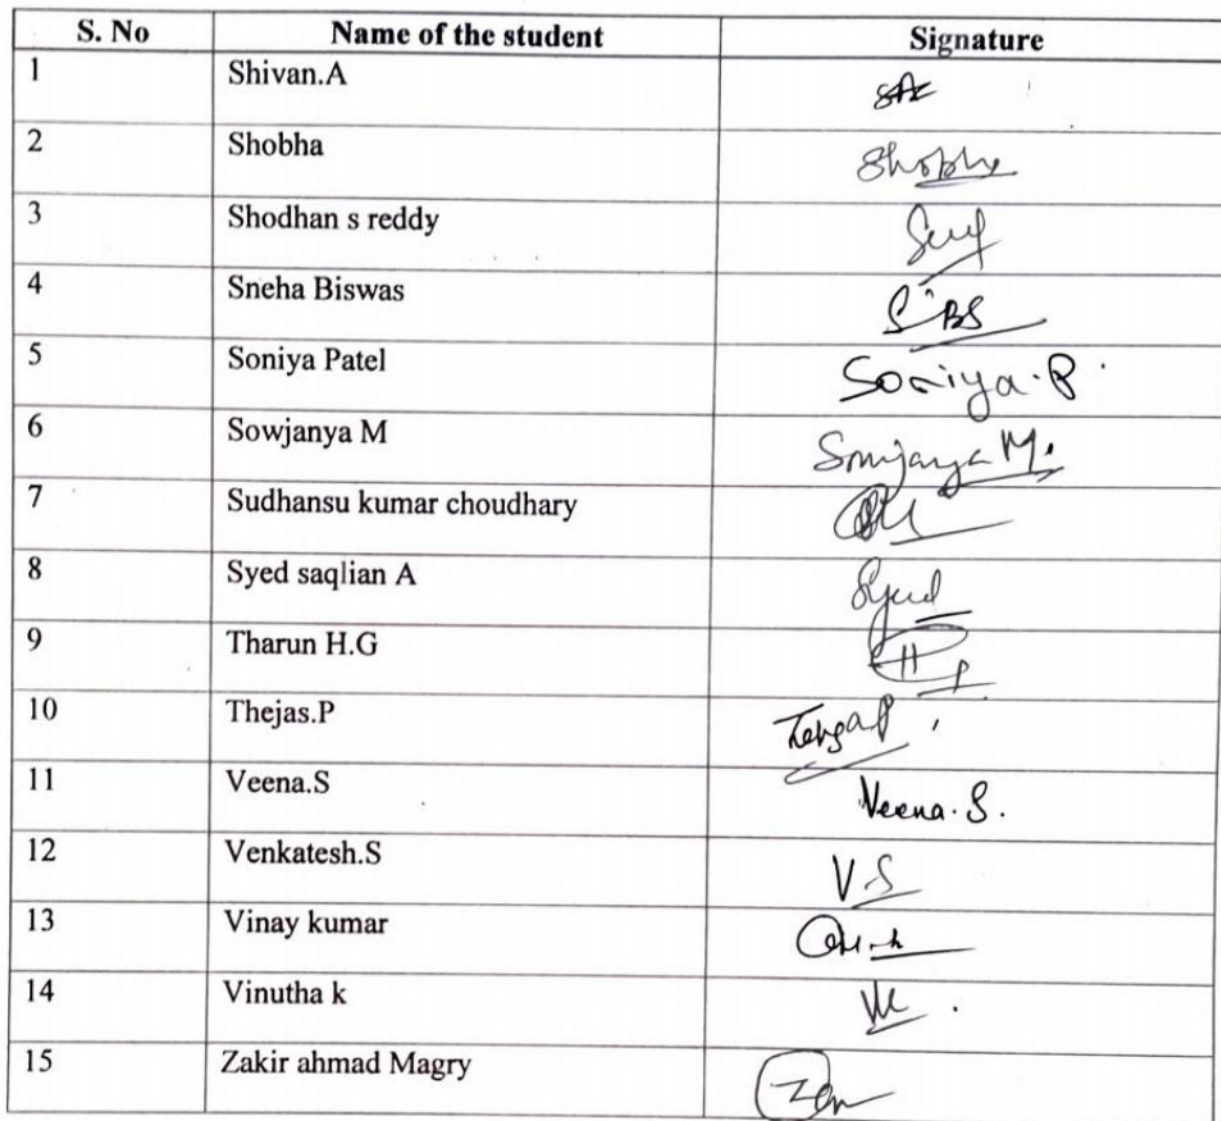 S. No Name of the student Signature
1 Shivan.A
2 Shobha Shobha
3 Shodhan s reddy
4 Sneha Biswas S BS
5 Soniya Patel Soniya.P
6 Sowjanya M Sowjanya M.
7 Sudhansu kumar choudhary
8 Syed saqlian A Syed
9 Tharun H.G
10 Thejas.P
11 Veena.S Veena.S.
12 Venkatesh.S V.S
13 Vinay kumar
14 Vinutha k
15 Zakir ahmad Magry